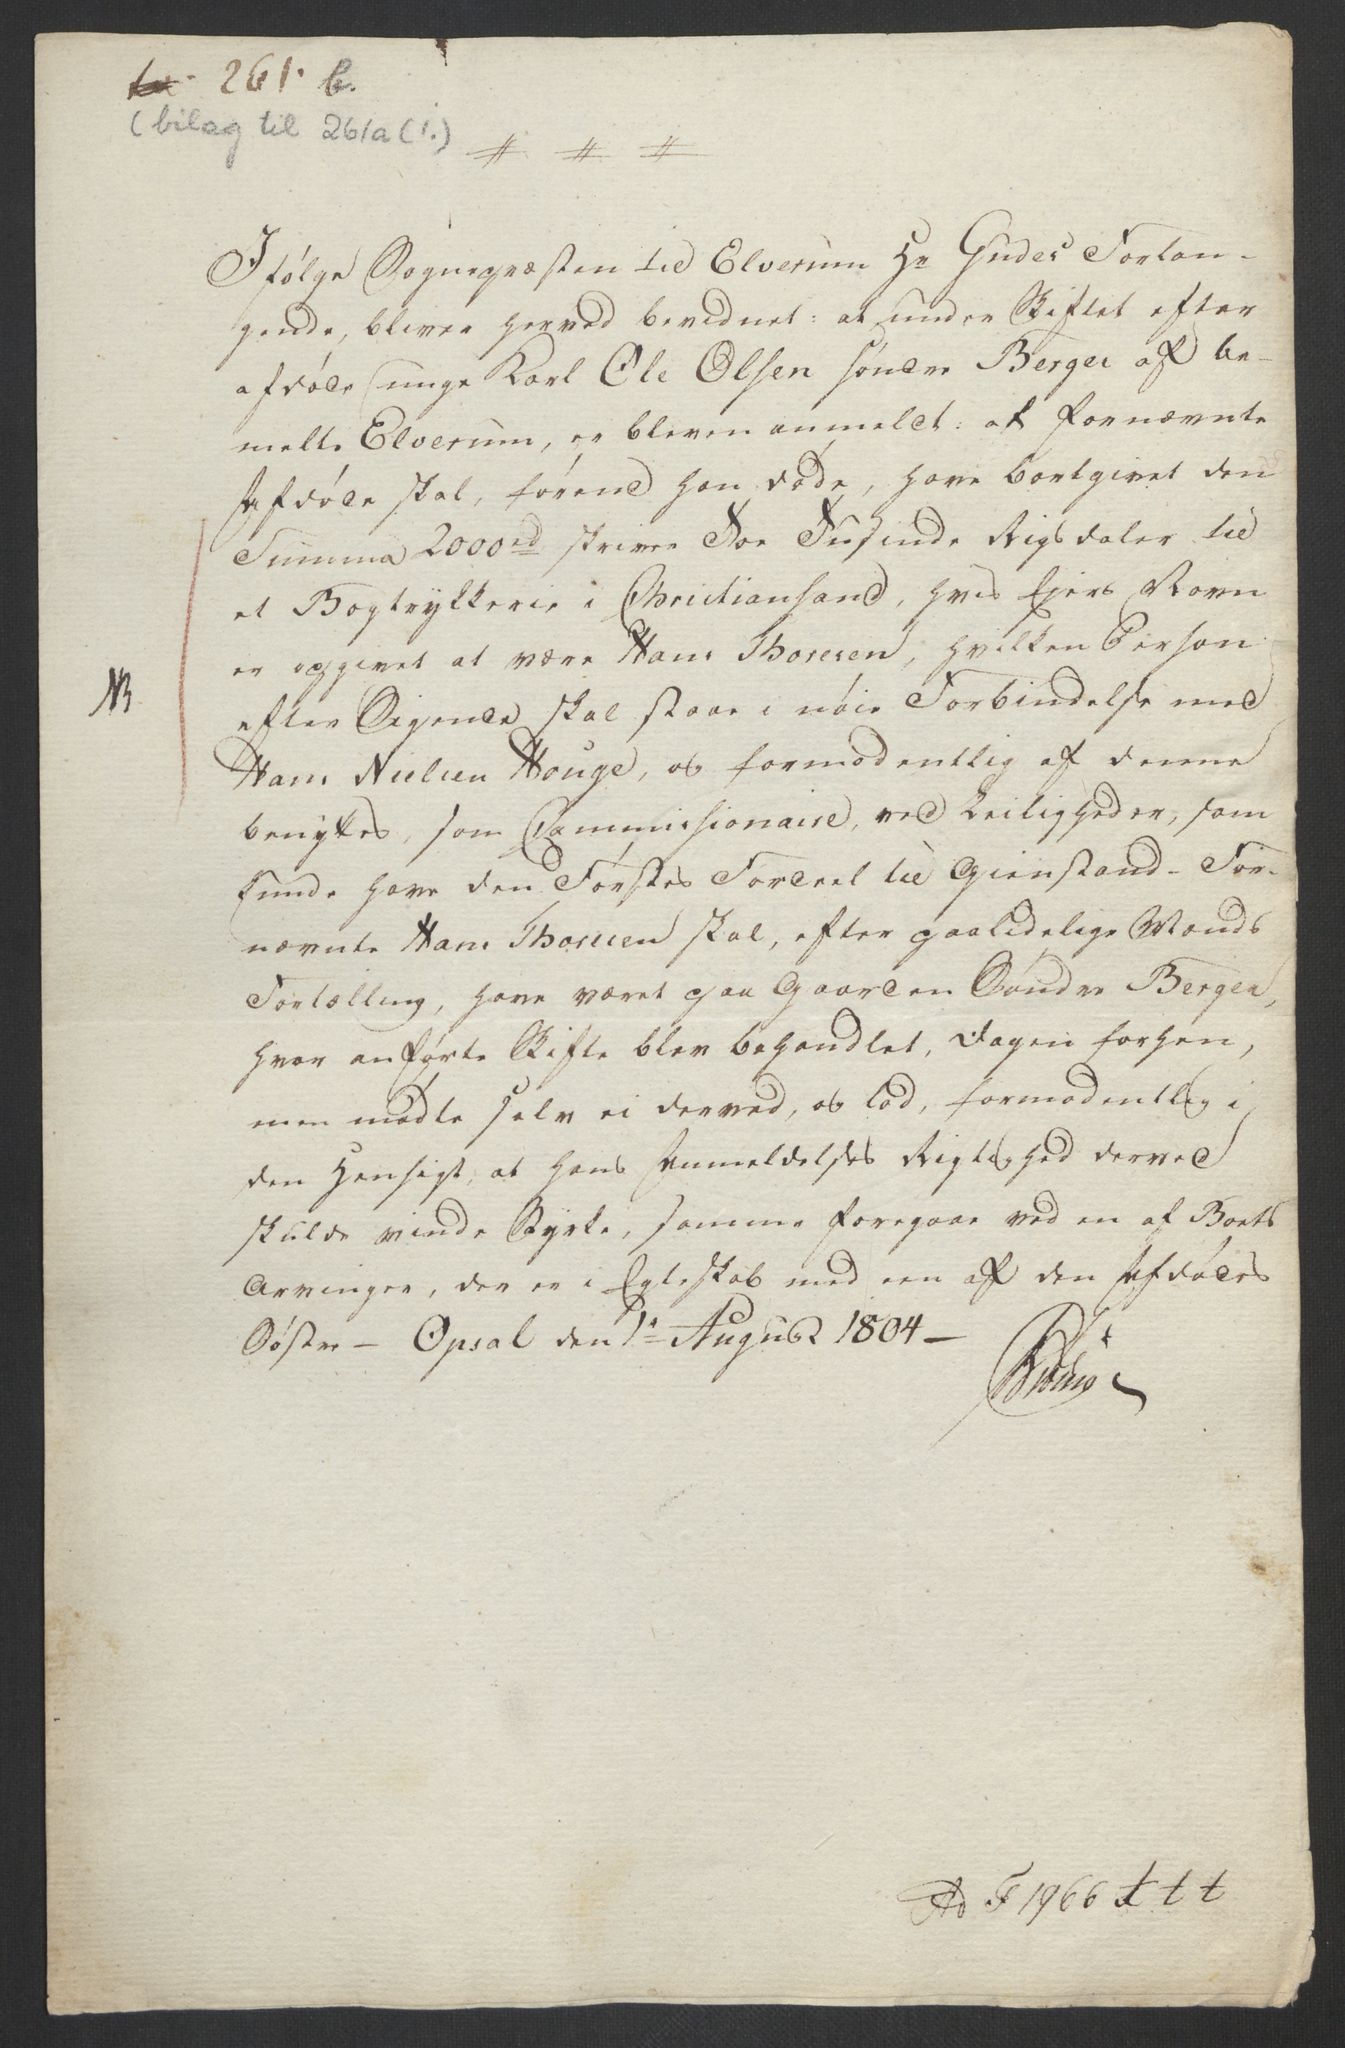 261. b.
(bilag til 261a (1.)
# # #
Ifølge Sognepræsten til Elverum Hr Gudes Forlan-
gende, bliver herved bevidnet: at under Skiftet efter
afdøde unge Karl Ole Olsen söndre Berger af be-
melte Elverum, er bleven anmeldt: at fornævnte
Afdøde skal, førend han døde, have bortgivet den
Summa 2000rd skriver Toe Tusinde Rigsdaler til
et Bogtrykkerie i Christiansand, hvis Ejers Navn
er opgivet at være Hans Thoresen, hvilken Person
NB
efter Sigende skal staae i nöie Forbindelse med
Hans Nielsen Houge, og formodentlig af denne
benyttes, som Commissionaire, ved Leiligheder, som
kunde have den Førstes Fordeel til Gienstand - For-
nævnte Hans Thoresen skal, efter paalidelige Mænds
Fortælling, have været paa Gaarden Söndre Berger,
hvor anførte Skifte blev behandlet, Dagen forhen,
men mødte selv ei derved, og lod, formodentlig i
den Hensigt, at hans Anmeldelses Rigtighed derved
skulde vinde Styrke, samme foregaae ved en af Boets
Arvinger, der er i Egteskab med een af den Afdødes
Søstre - Opsal den 1te August 1804 -
Ad F 1966 ttt